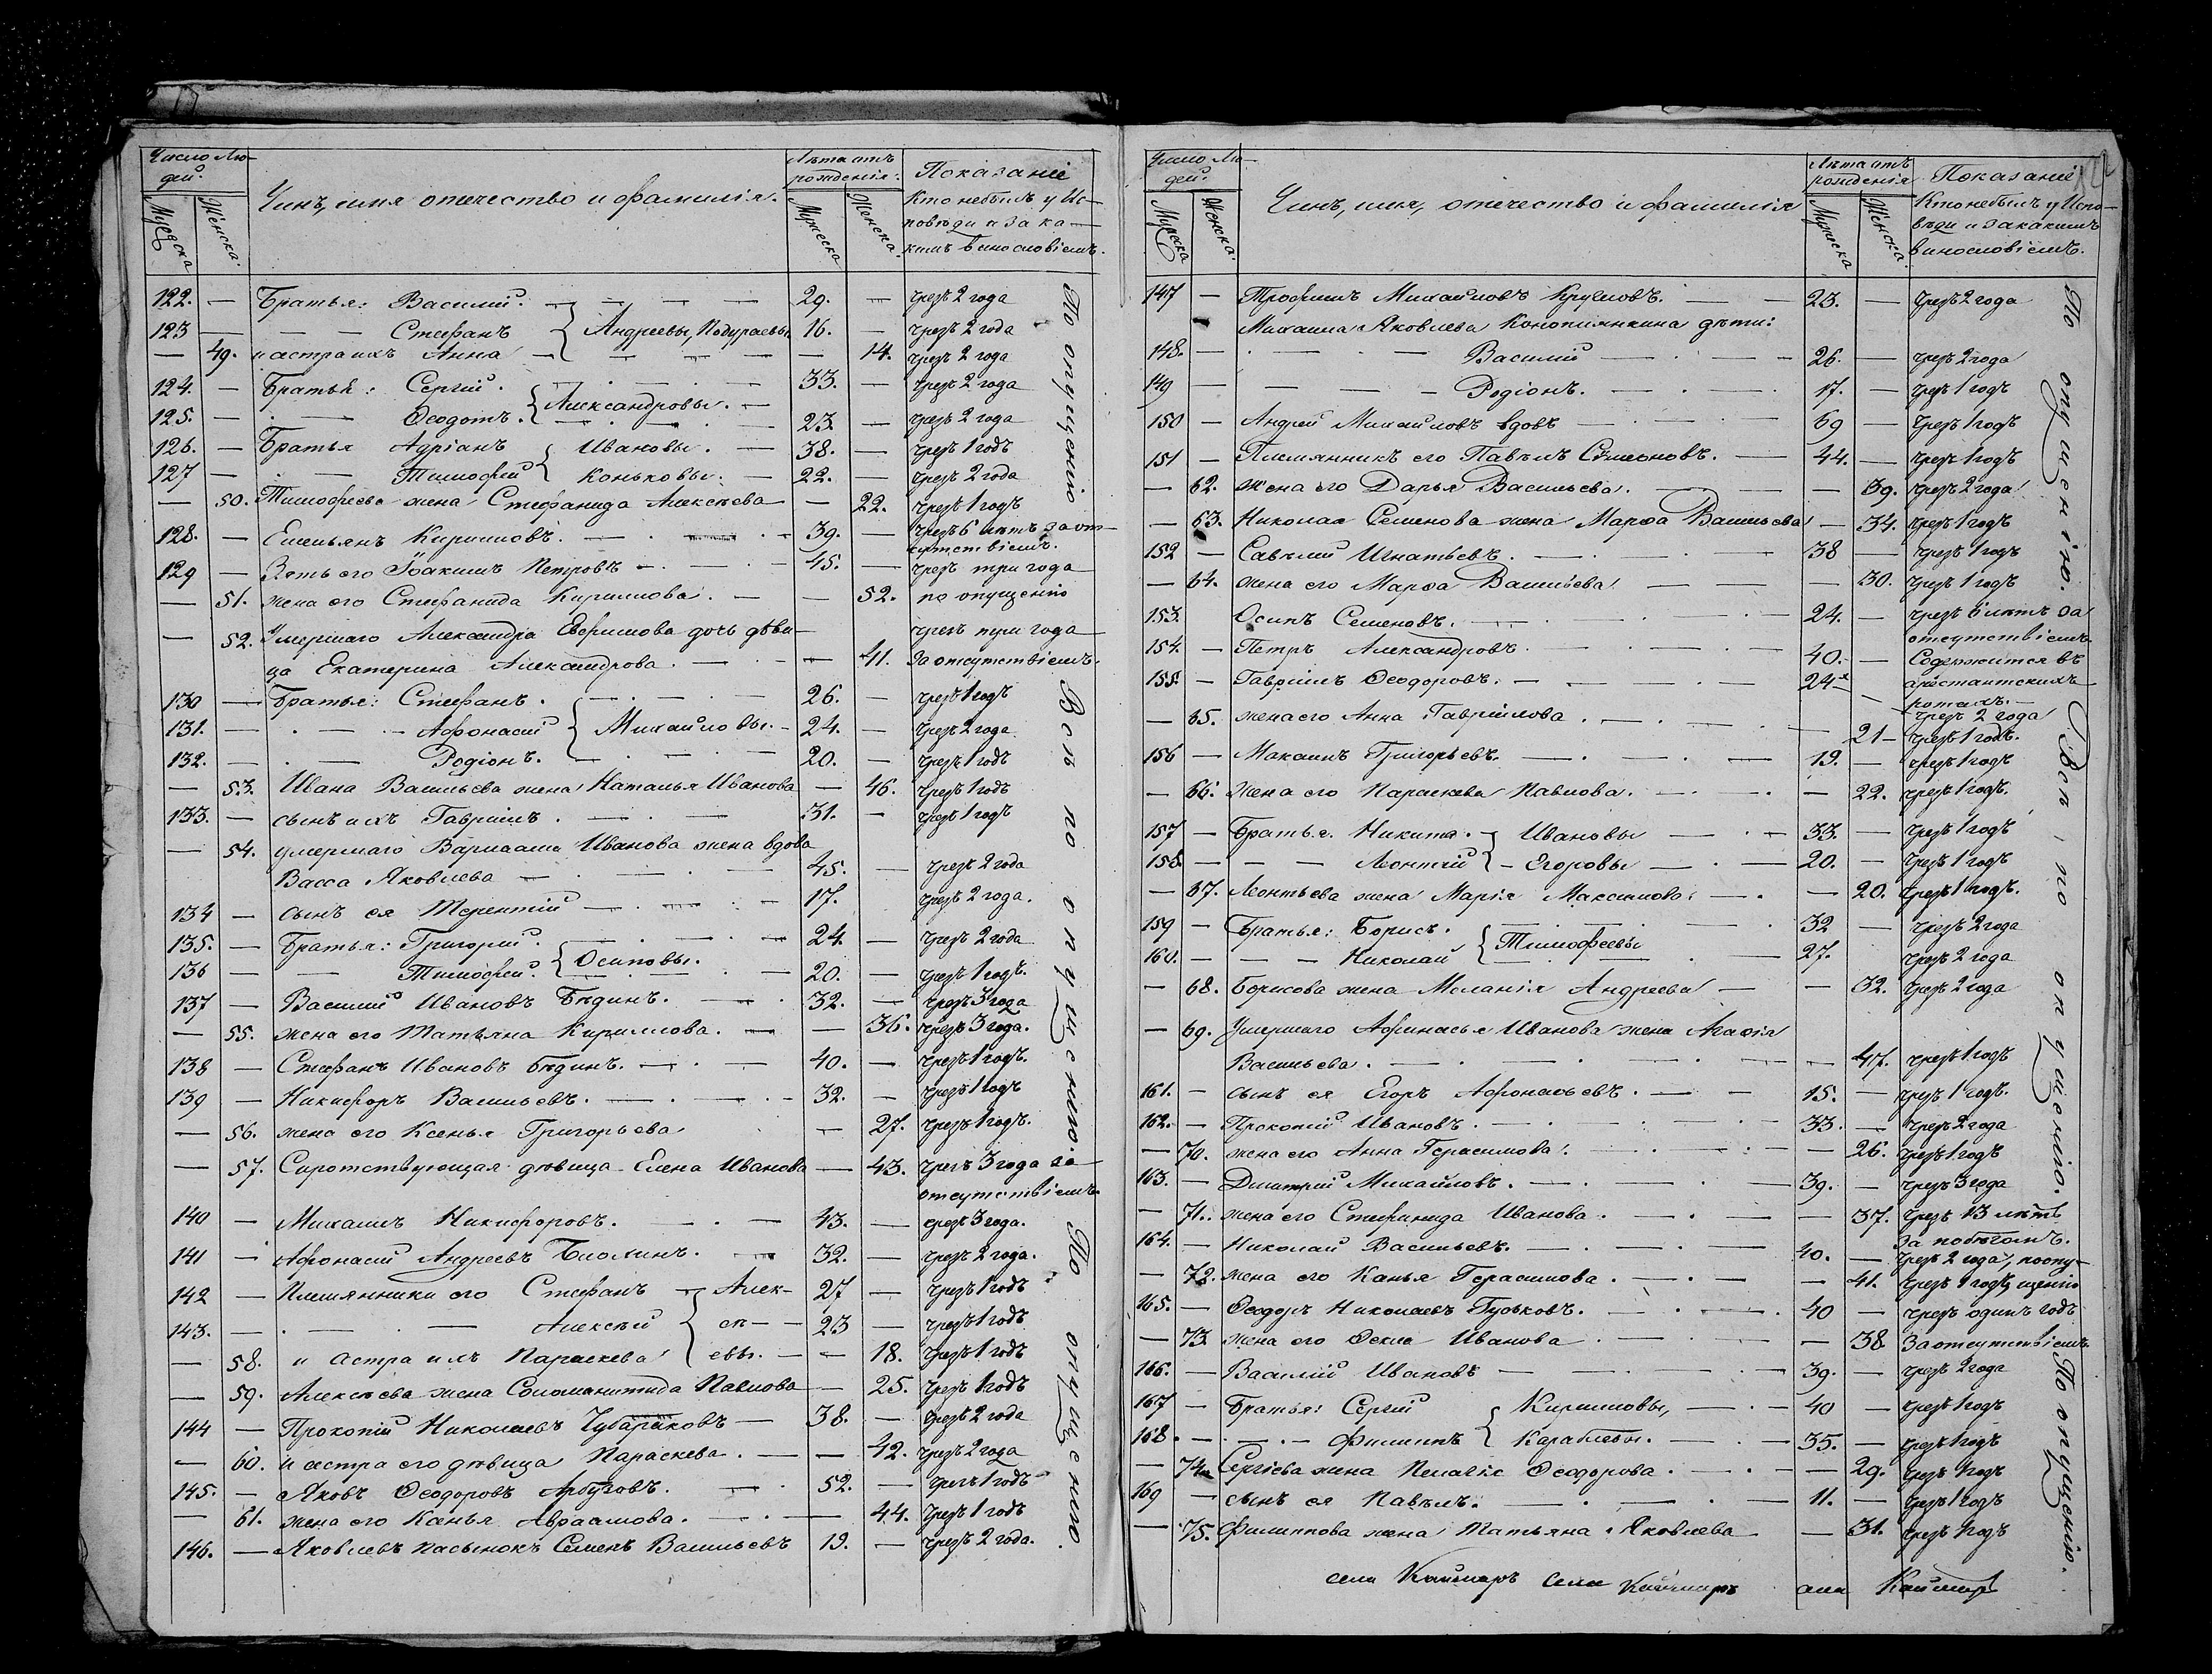 Число Лю-
дей.
Мужеска
Женска.
Чинъ, имя отечество и фамилія.
Лѣта отъ
рожденія.
Мужеска
Женска.
Показаніе
Кто небылъ у Ис-
повѣди и за ка-
кимъ винословіемъ.
122. — Братья: Василий. — 29. — чрезъ 2 года
123 — Стефанъ { Андреевы, 16. — чрезъ 2 года
— 49. и сестра ихъ Анна — 14. чрезъ 2 года
124. — Братья: Сергій. — 33. — чрезъ 2 года
125. — Ѳеодотъ. { Александровы. — 23 — чрезъ 2 года
126. — Братья Адріанъ { Ивановы. — 38. — чрезъ 1 годъ
127 — Тимофей { Коньковы. — 22. — чрезъ 2 года
— 50. Тимофеева жена Стефанида Алексѣева — 22. чрезъ 1 годъ
128. — Емельянъ Кириловъ. — 39. — чрезъ 6 лѣтъ за от-
сутствіемъ.
129 — Зять его Іоакимъ Петровъ — 45. — чрезъ три года
— 51. жена его Стефанида Кирилова. — 52. по опущенію
— 52. Умершаго Александра Ефимова дочь дѣви- чрезъ три года
ца Екатерина Александрова. — 41. За отсутствіемъ.
130 — Братья: Стефанъ. — 26. — чрезъ 1 годъ
131. — Афонасій { Михайловы. — 24. — чрезъ 2 года
132. — Родіонъ. — 20. — чрезъ 1 годъ
— 53. Ивана Васильева жена Наталья Иванова — 46. чрезъ 1 годъ
133. — сынъ ихъ Гавріилъ. — 31. — чрезъ 1 годъ
— 54. умершаго Варлаама Иванова жена вдова
Васса Яковлева — 45. — чрезъ 2 года
134 — сынъ ея Терентій — 17. чрезъ 2 года.
135. — Братья: Григорій. — 24. — чрезъ 2 года
136 — Тимофей. { Осиповы. — 20. — чрезъ 1 годъ.
137 — Василий Ивановъ Бѣдинъ. — 32. — чрезъ 3 года
— 55. жена его Татьяна Кириллова. — 36. чрезъ 3 года.
138 — Стефанъ Ивановъ Бѣдинъ. — 40. — чрезъ 1 годъ.
139 — Никифоръ Васильевъ. — 32. — чрезъ 1 годъ
— 56. жена его Ксенья Григорьева — 27. чрезъ 1 годъ.
— 57. Сиротствующая дѣвица Елена Иванова — 43. чрезъ 3 года за
отсутствіемъ.
140 — Михаилъ Никифоровъ. — 43. — чрезъ 3 года.
141 — Афонасій Андреевъ — 32. — чрезъ 2 года.
142 — Племянники его Стефанъ { Алек- 27 — чрезъ 1 годъ
143. — Алексѣй { сѣ- — 23 — чрезъ 1 годъ
— 58. и сестра ихъ Параскева { евы. — 18. чрезъ 1 годъ
— 59. Алексѣева жена Павлова — 25. чрезъ 1 годъ
144 — Прокопій Николаевъ Чубариковъ — 38. — чрезъ 2 года
— 60. и сестра его дѣвица Параскева. — 42. чрезъ 2 года
145. — Яковъ Ѳеодоровъ Арбузовъ. — 52. — чрезъ 1 годъ
— 61. жена его Ксенья Авраамова. — 44. чрезъ 1 годъ
146. — Яковлевъ пасынокъ Семенъ Васильевъ 19. — чрезъ 2 года.
По опущенію Всѣ по опущенію. По опущенію.
Число Лю-
дей.
Мужеска
Женска.
Чинъ, имя, отечество и фамилія
Лѣта отъ
рожденія
Мужеска
Женска.
Показаніе
Кто небылъ у Испо-
вѣди и за какимъ
винословіемъ.
147 — Трофимъ Михайловъ Кругловъ. — 23. — чрезъ 2 года
Михаила Яковлева Конопляникина дѣти:
148. — Василий — 26. — чрезъ 2 года
149 — Родіонъ. — 17. — чрезъ 1 годъ
150 — Андрей Михайловъ вдовъ — 69 — чрезъ 1 годъ
151 — Племянникъ его Павелъ Симеоновъ. — 44. — чрезъ 1 годъ
— 62. жена его Дарья Васильева. — 39. чрезъ 2 года
— 63. Николая Семенова жена Марѳа Васильева — 34. чрезъ 1 годъ
152 — Савелий Игнатьевъ. — 38 — чрезъ 1 годъ
— 64. жена его Марѳа Васильева — 30. чрезъ 1 годъ
153. Осипъ Семеновъ. — 24. — чрезъ 6 лѣтъ за
отсутствіемъ
154. — Петръ Александровъ. — 40. — Содержится въ
арестантскихъ
ротахъ. —
155. — Гавріилъ Ѳеодоровъ. — 24 — чрезъ 2 года
— 65. жена его Анна Гаврилова. — 21 — чрезъ 1 годъ.
156 — Максимъ Григорьевъ. — 19. — чрезъ 1 годъ
— 66. Жена его Параскева Павлова. — 22. чрезъ 1 годъ.
157 — Братья. Никита. { Ивановы — 33. — чрезъ 1 годъ
158. — Леонтій { Егоровы — 20. — чрезъ 1 годъ
— 67. Леонтьева жена Марія Максимова — 20. чрезъ 1 годъ.
159 — Братья: Борисъ. — 32 — чрезъ 2 года
160. — Николай { Тимофеевы — 27. чрезъ 2 года
— 68. Борисова жена Меланія Андреева — 32. чрезъ 2 года
— 69. Умершаго Афанасья Иванова жена Агафія
Васильева. — 47. чрезъ 1 годъ
161. — сынъ ея Егоръ Афонасьевъ. — 15. — чрезъ 1 годъ.
162. — Прокопій Ивановъ. — 33. — чрезъ 2 года
— 70. жена его Анна Герасимова. — 26. чрезъ 1 годъ
163. — Дмитрій Михайловъ. — 39. — чрезъ 3 года
— 71. жена его Стефанида Иванова. — 37. чрезъ 13 лѣтъ
за побѣгомъ.
164. — Николай Васильевъ. — 40. — чрезъ 2 года, поопу-
— 72. жена его Ксенья Герасимова. — 41. чрезъ 1 годъ щенію
165. — Ѳеодоръ Николаевъ Гуськовъ. — 40 — чрезъ одинъ годъ
— 73 жена его Ѳекла Иванова — 38 За отсутствіемъ
166. — Василий Ивановъ — 39. — чрезъ 2 года
167 — Братья: Сергій { Кириловы, — 40 — чрезъ 1 годъ
168. — Филиппъ { Караблевы. — 35. — чрезъ 1 годъ
— 74. Сергіева жена Пелагія Ѳеодорова. — 29. чрезъ 1 годъ
169 — сынъ ея Павелъ. — 11. — чрезъ 1 годъ
— 75. Филиппова жена Татьяна Яковлева — 31. чрезъ 1 годъ
По опущенію. Всѣ по опущенію. По опущенію.
села Каймаръ Села Каймаръ села Каймаръ